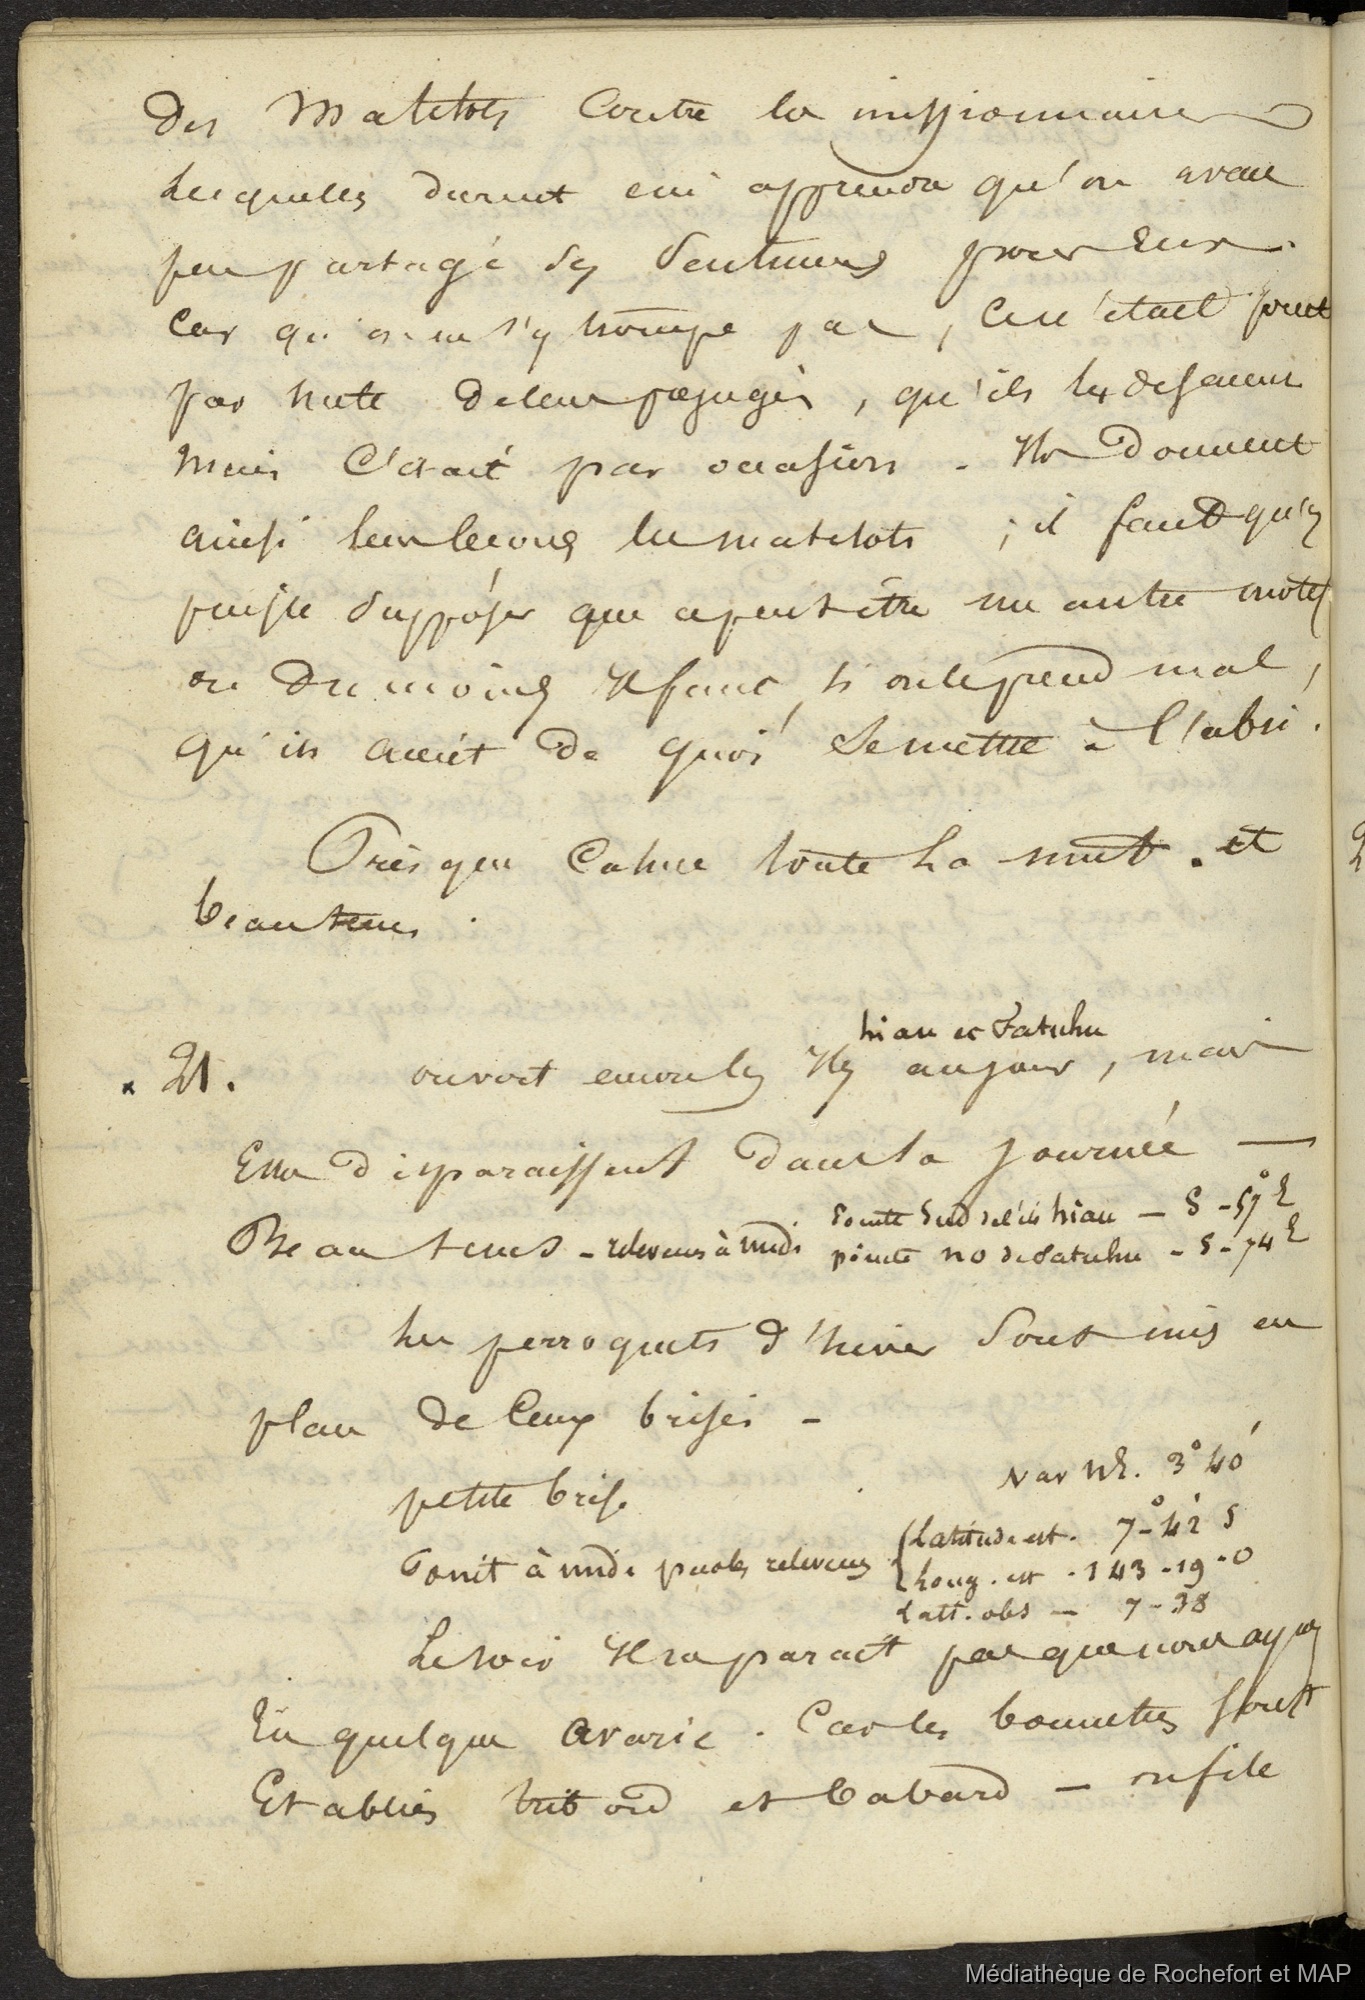 des Matelots Contre les missionnaires
lesquels durent en apprendre qu'on avait
peu partagé des Sentimens pour Eux.
Car qu'on ne s'y trompe pas, Ce n'était point
par suite de leurs préjugés, qu'ils les
mais C'était par occasion - Ils Donnent
ainsi leur leçons les matelots ; il faut qu'on
puisse Supposer que a peut être un autre motif
ou Du moins Il faut, si on le prend mal,
qu'ils aient De quoi Se mettre à l'abri.
Presque Calme toute La nuit. et
beautems.
hiau et fatuhu
21. on voit encore les Iles au jour, mais
Elles disparaissent dans la journée —
Beau tems - relevens à midi pointe Sud de l'île hiau — S - 57° E
pointe NO de fatuhu - S - 74 E
les perroquets d'hiver Sont mis en
plan de Ceux brisés -
petite brise
Var NE. 3° 40'
Point à midi par les relevens Latitude est. 7 - 42 S
Long. est - 143 - 19 - O
Latt. obs — 7 - 38
Le soir Il ne parait pas que nous ayons
Eu quelque avarie. Car les bonnettes sont
Etablies tribord et babord — on file
Médiathèque de Rochefort et MAP